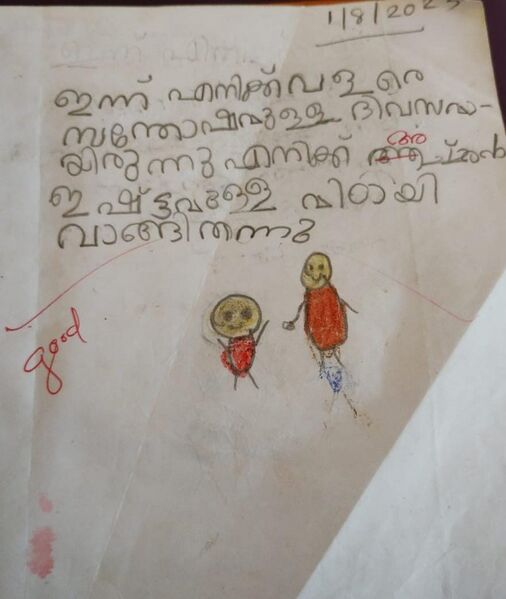 1/8/2023
ഇന്ന് എനിക്ക് വളരെ
സന്തോഷമുള്ള ദിവസമാ-
യിരുന്നു എനിക്ക് അച്ഛൻ
ഇഷ്ട്ടമുള്ള മിഠായി
വാങ്ങി തന്നു
good